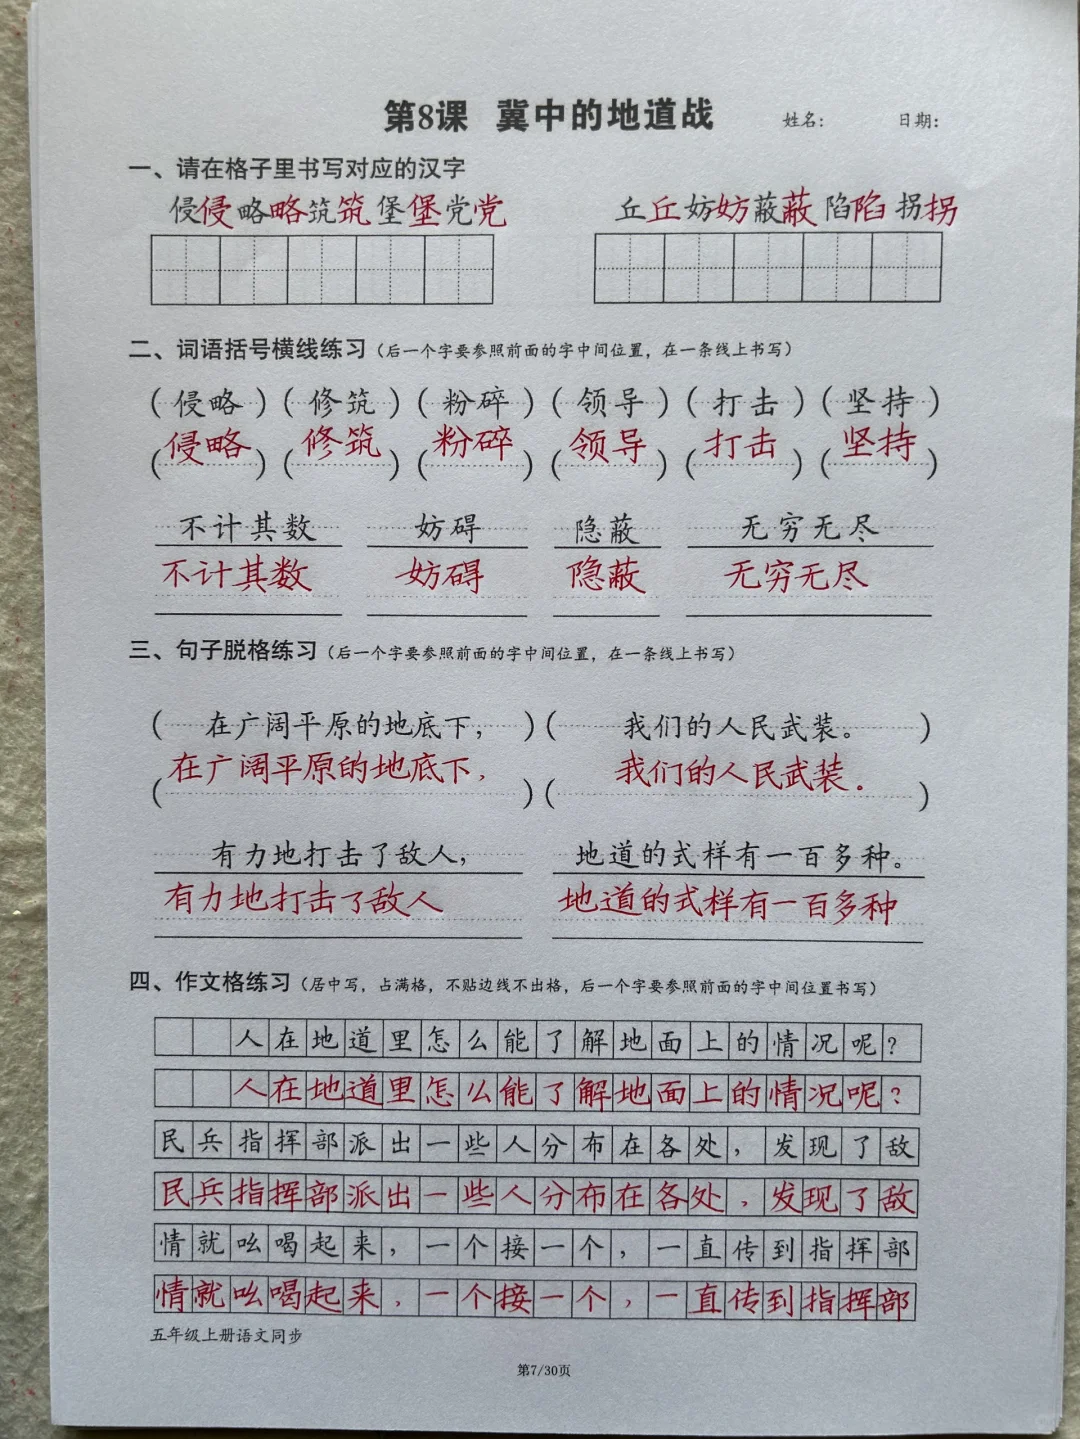 第8课 冀中的地道战 姓名: 日期:
一、请在格子里书写对应的汉字
侵侵略略筑筑堡堡党党 丘丘妨妨蔽蔽陷陷拐拐
二、词语括号横线练习(后一个字要参照前面的字中间位置,在一条线上书写)
(侵略)(修筑)(粉碎)(领导)(打击)(坚持)
(侵略)(修筑)(粉碎)(领导)(打击)(坚持)
不计其数 妨碍 隐蔽 无穷无尽
不计其数 妨碍 隐蔽 无穷无尽
三、句子脱格练习(后一个字要参照前面的字中间位置,在一条线上书写)
(在广阔平原的地底下,)(我们的人民武装。)
(在广阔平原的地底下,)(我们的人民武装。)
有力地打击了敌人, 地道的式样有一百多种。
有力地打击了敌人 地道的式样有一百多种
四、作文格练习(居中写,占满格,不贴边线不出格,后一个字要参照前面的字中间位置书写)
人在地道里怎么能了解地面上的情况呢?
人在地道里怎么能了解地面上的情况呢?
民兵指挥部派出一些人分布在各处,发现了敌
民兵指挥部派出一些人分布在各处,发现了敌
情就吆喝起来,一个接一个,一直传到指挥部
情就吆喝起来,一个接一个,一直传到指挥部
五年级上册语文同步
第7/30页